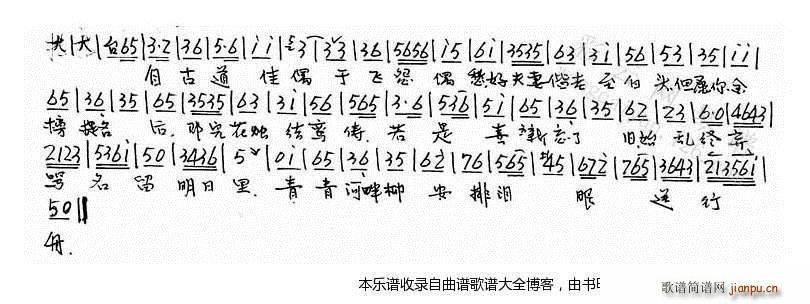 大 | 大 | 台 65 | 3·2 | 36 | 5·6 | i i | 3 3 3 | 36 | 5656 | i5 | 6i | 3535 | 63 | 3i | 56 | 53 | 35 | i i |
自古道 佳偶于飞 怨偶 愁 好夫妻偕老至白头 但愿你金
65 | 36 | 35 | 65 | 3535 | 63 | 3i | 56 | 565 | 3·6 | 536 | 5i | 65 | 36 | 35 | 62 | 23 | 6·0 | 4643 |
榜提名后, 洞完花烛结鸾俦. 若是喜新忘了旧 始乱终弃
2123 | 536i | 50 | 3436 | 5 | 0i | 65 | 36 | 35 | 62 | 76 | 565 | 45 | 672 | 765 | 3643 | 213561 |
骂名留 明日里, 青青河畔柳 安排泪眼送行
50 ‖
舟.
本乐谱收录自曲谱歌谱大全博客，由书
歌谱简谱网
jianpu.cn